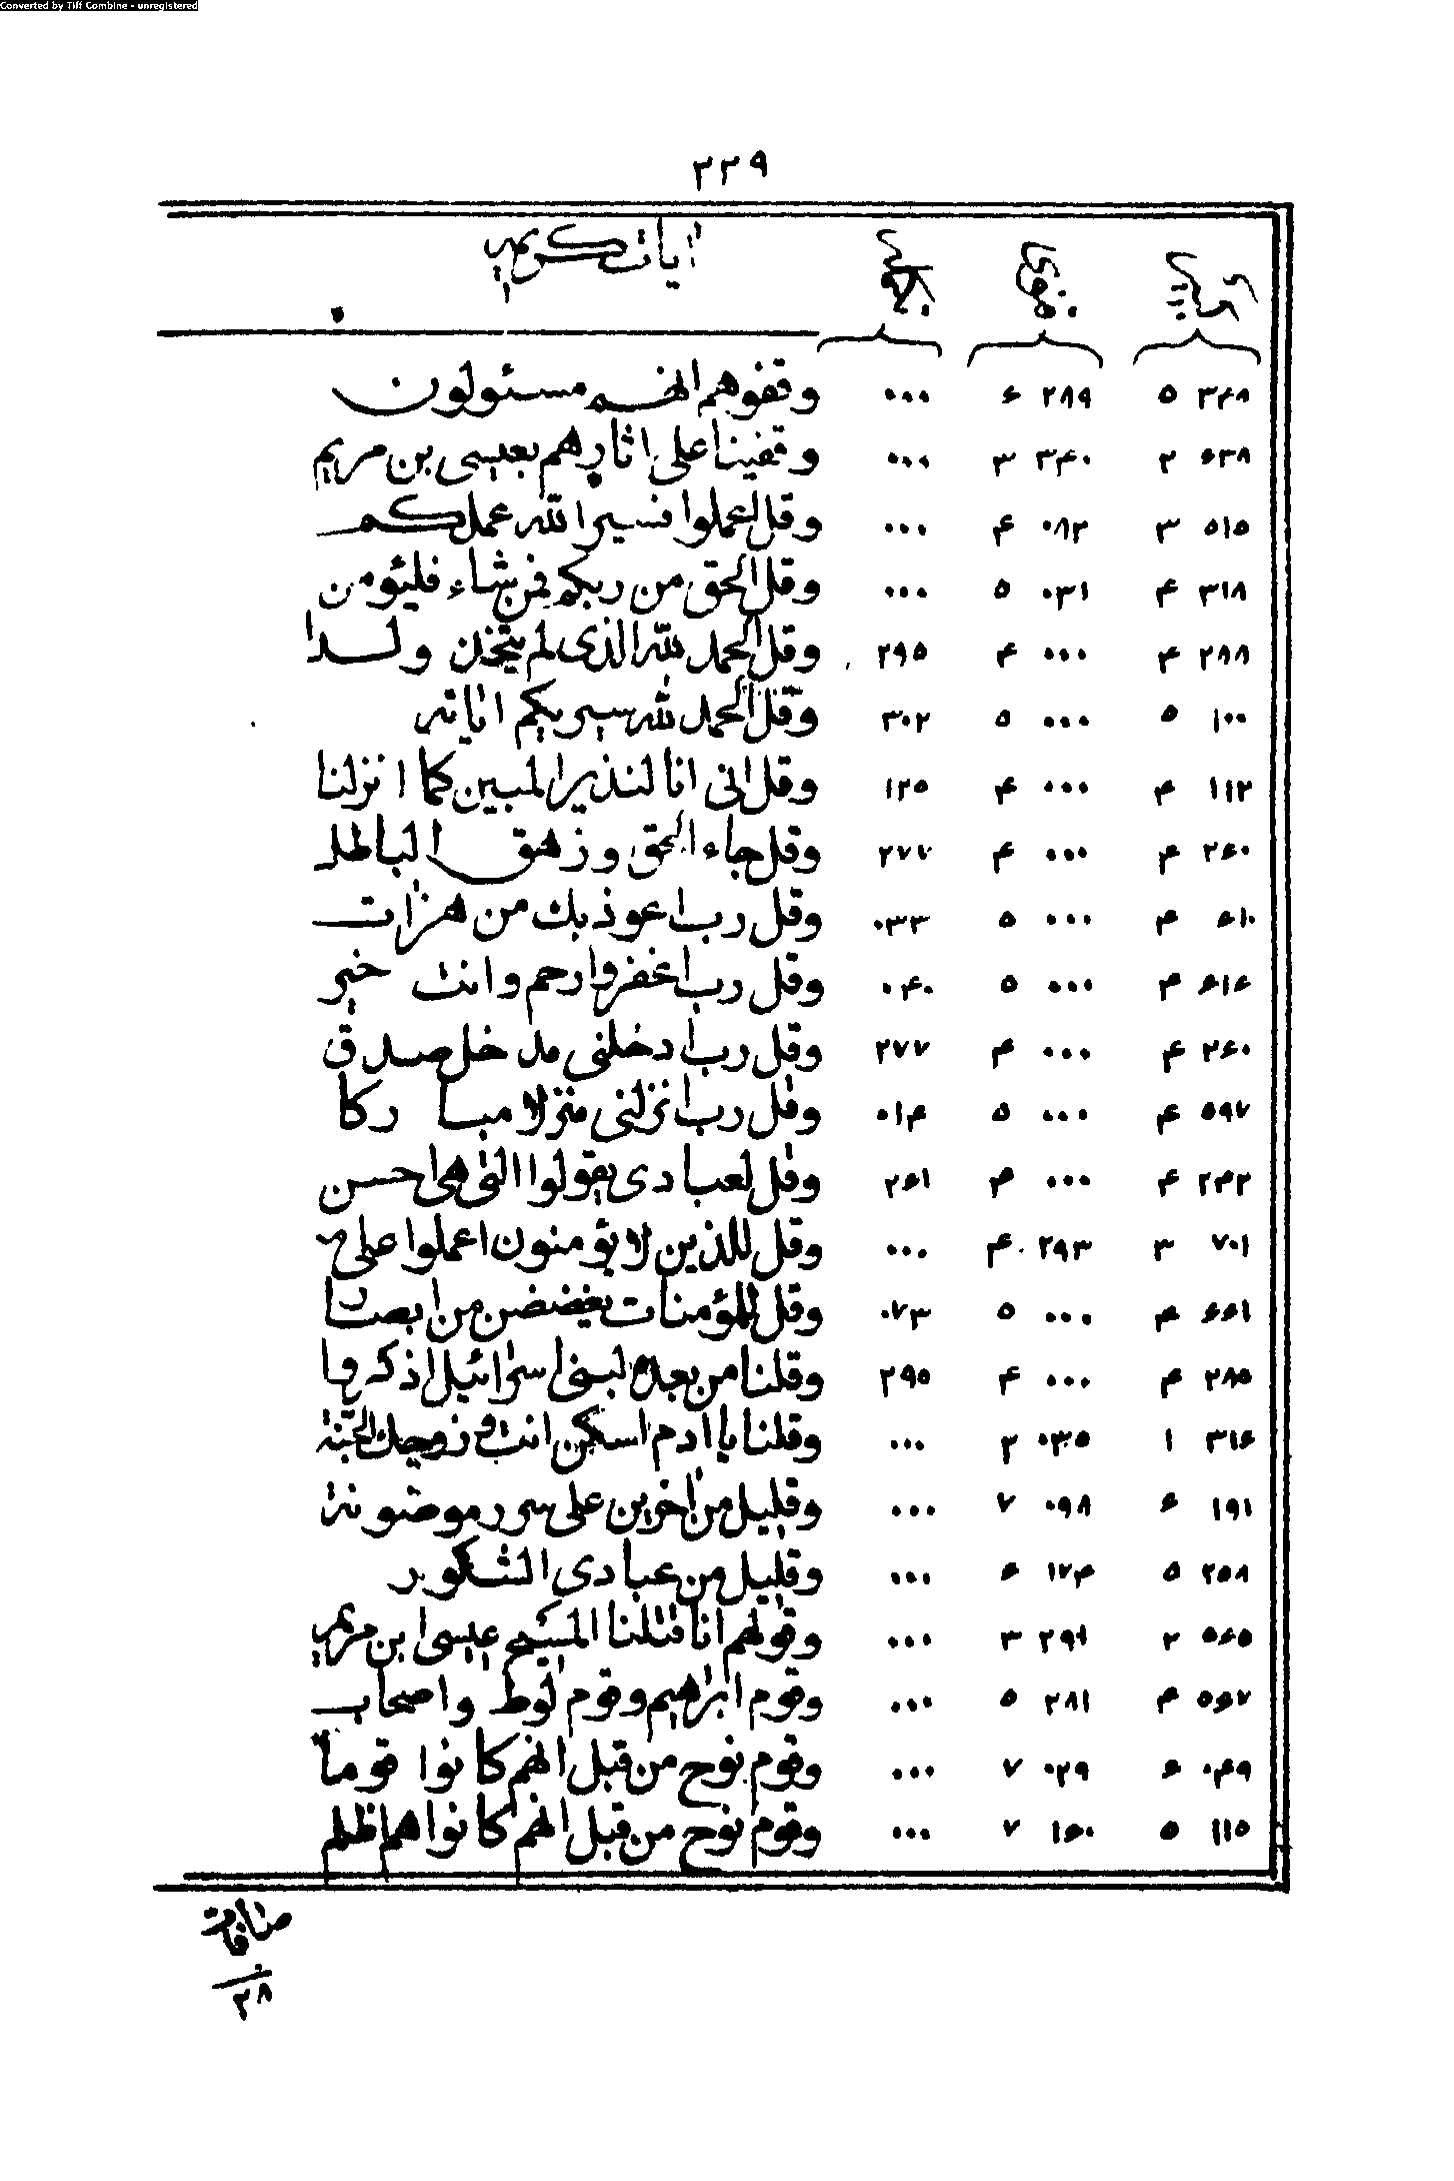 Converted by Tiff Combine - unregistered
٢٢٩
آيات كريمه
٣٤٨ ٥ ٢٨٩ ٤ ٠٠٠ وقفوهم انهم مسئولون
٤٣٨ ٢ ٣٤٠ ٣ ٠٠٠ وقفينا على اثارهم بعيسى بن مريم
٥١٥ ٣ ٠٨٢ ۴ ٠٠٠ وقل اعملوا فسيرا لله عملكم
٣١٨ ۴ ٠٣١ ٥ ٠٠٠ وقل الحق من ربكم فمن شاء فليؤمن
٢٨٨ ۴ ٠٠٠ ۴ ٢٩٥ وقل الحمد لله الذى لم يتخذ ولدا
١٠٠ ٥ ٠٠٠ ٥ ٣٠٢ وقل الحمد لله سيريكم اياته
١١٢ ۴ ٠٠٠ ۴ ١٢٥ وقل انى انا لنذير المبين كما انزلنا
٢٤٠ ۴ ٠٠٠ ۴ ٢٧٧ وقل جاء الحق وزهق الباطل
٤١٠ ۴ ٠٠٠ ٥ ٠٣٣ وقل رب اعوذ بك من همزات
٤١٤ ۴ ٠٠٠ ٥ ٠۴٠ وقل رب اغفر وارحم وانت خير
٢٤٠ ۴ ٠٠٠ ۴ ٢٧٧ وقل رب ادخلنى مدخل صدق
٥٩٧ ۴ ٠٠٠ ٥ ٠١۴ وقل رب انزلنى منزلا مباركا
٢۴٢ ۴ ٠٠٠ ۴ ٢٤١ وقل لعبادى يقولوا التى هى احسن
٧٠١ ٣ ٢٩٣ ۴ ٠٠٠ وقل للذين لا يؤمنون اعملوا على م
٤٤١ ۴ ٠٠٠ ٥ ٠٧٣ وقل للمؤمنات يغضضن من ابصار
٢٨٥ ۴ ٠٠٠ ۴ ٢٩٥ وقلنا من بعده لبنى اسرائيل
٣١٤ ١ ٠٣٥ ٢ ٠٠٠ وقلنا يا ادم اسكن انت و زوجك الجنة
١٩١ ٤ ٠٩٨ ٧ ٠٠٠ وقليل من اخرين على سرر موضونة
٢٥٨ ٥ ١٧۴ ٤ ٠٠٠ وقليل من عبادى الشكور
٥٤٥ ٢ ٢٩١ ٣ ٠٠٠ وقولهم انا قتلنا المسيح عيسى ابن مريم
٥٤٧ ۴ ٢٨١ ٥ ٠٠٠ وقوم ابراهيم وقوم لوط واصحاب
٠۴٩ ٤ ٠٢٩ ٧ ٠٠٠ وقوم نوح من قبل انهم كانوا قوما
١١٥ ٥ ١٤٠ ٧ ٠٠٠ وقوم نوح من قبل انهم كانوا هم اظلم
٢٨